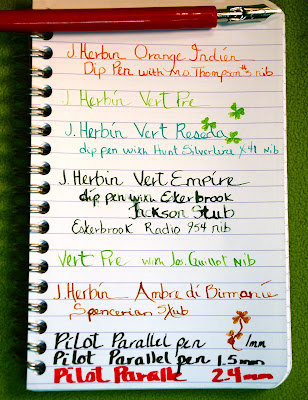 J. Herbin Orange Indien
Dip Pen with M.O. Thompson #3 nib
J Herbin Vert Pre
J. Herbin Vert Reseda
dip pen with Hunt Silverline X41 Nib
J. Herbin Vert Empire
dip pen with Esterbrook
Jackson Stub
Esterbrook Radio 954 nib
Vert Pre with Jos. Guillot Nib
J. Herbin Ambre di Birmanie
Spencerian Stub
Pilot Parallel pen 1mm
Pilot Parallel pen 1.5mm
Pilot Paralle 2.4mm